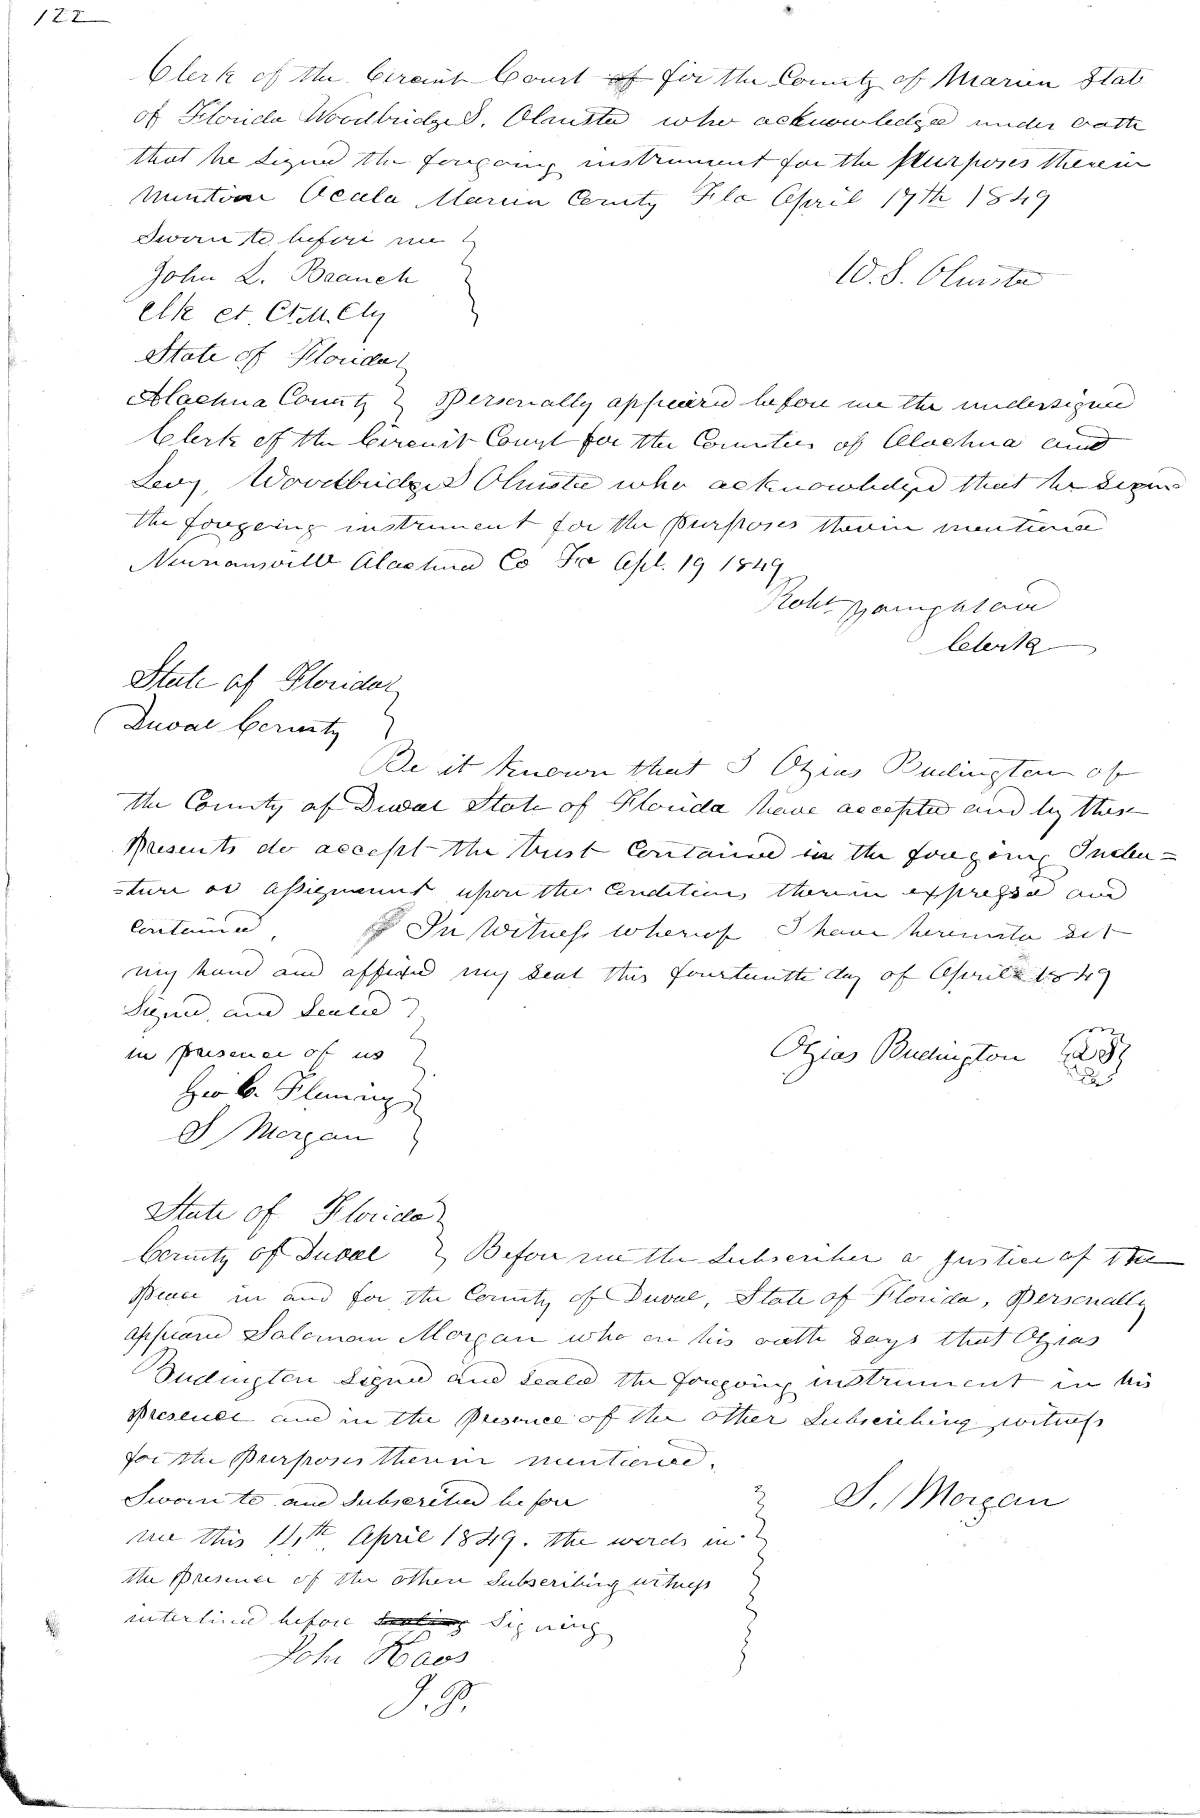 122
Clerk of the Circuit Court of for the County of Marion State
of Florida Woodbridge S. Olmsted who acknowledged under oath
that he signed the foregoing instrument for the purposes therein
mention Ocala Marion County Fla April 17th 1849
Sworn to before me
John L. Branch
W. S. Olmsted
clk ct. Ct. M. Cty
State of Florida
Alachua County Personally appeared before me the undersigned
Clerk of the Circuit Court for the Counties of Alachua and
Levy, Woodbridge S Olmsted who acknowledged that he signed
the foregoing instrument for the purposes therein mentioned
Newnansville Alachua Co Fa Apl. 19 1849
Robt
Clerk
State of Florida
Duval County
Be it known that I Ozias Budington of
the County of Duval State of Florida have accepted and by these
Presents do accept the trust contained in the foregoing Inden=
=ture or assignment upon the conditions therein expressed and
contained, In Witness whereof I have hereunto set
my hand and affixed my seal this fourteenth day of April 1849
Signed, and Sealed
in presence of us
Ozias Budington LS
Geo C. Fleming
S Morgan
State of Florida
County of Duval Before me the Subscriber a Justice of the
Peace in and for the County of Duval, State of Florida, Personally
appeared Saloman Morgan who on his oath says that Ozias
Budington signed and sealed the foregoing instrument in his
Presence and in the Presence of the other Subscribing witness
for the Purposes therein mentioned.
Sworn to and Subscribed before
S. Morgan
me this 14th April 1849. the words in
the Presence of the other Subscribing witness
interlined before sealing Signing
John
J. P.